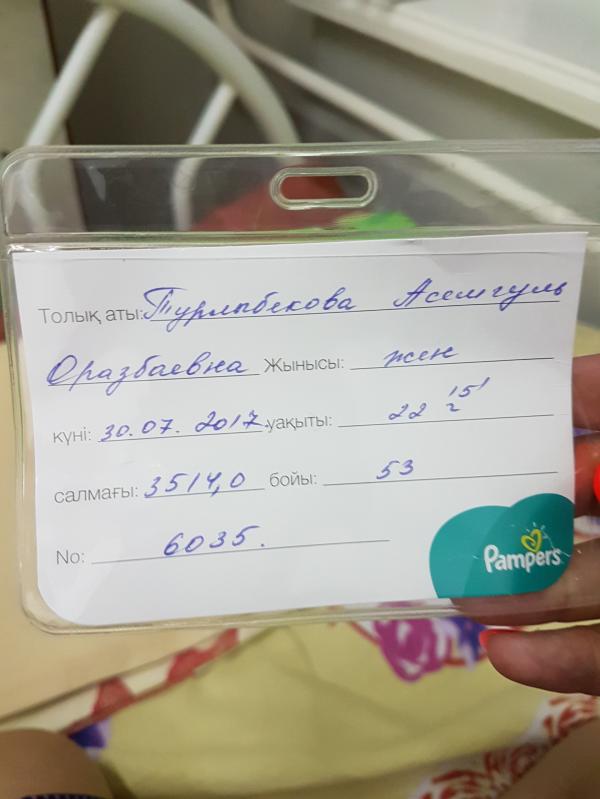 Толық аты: Турлпбекова Асемгуль
Оразбаевна Жынысы: жен
күні: 30.07.2017. уақыты: 22 15'
салмағы: 3514,0 бойы: 53
No: 6035.
Pampers